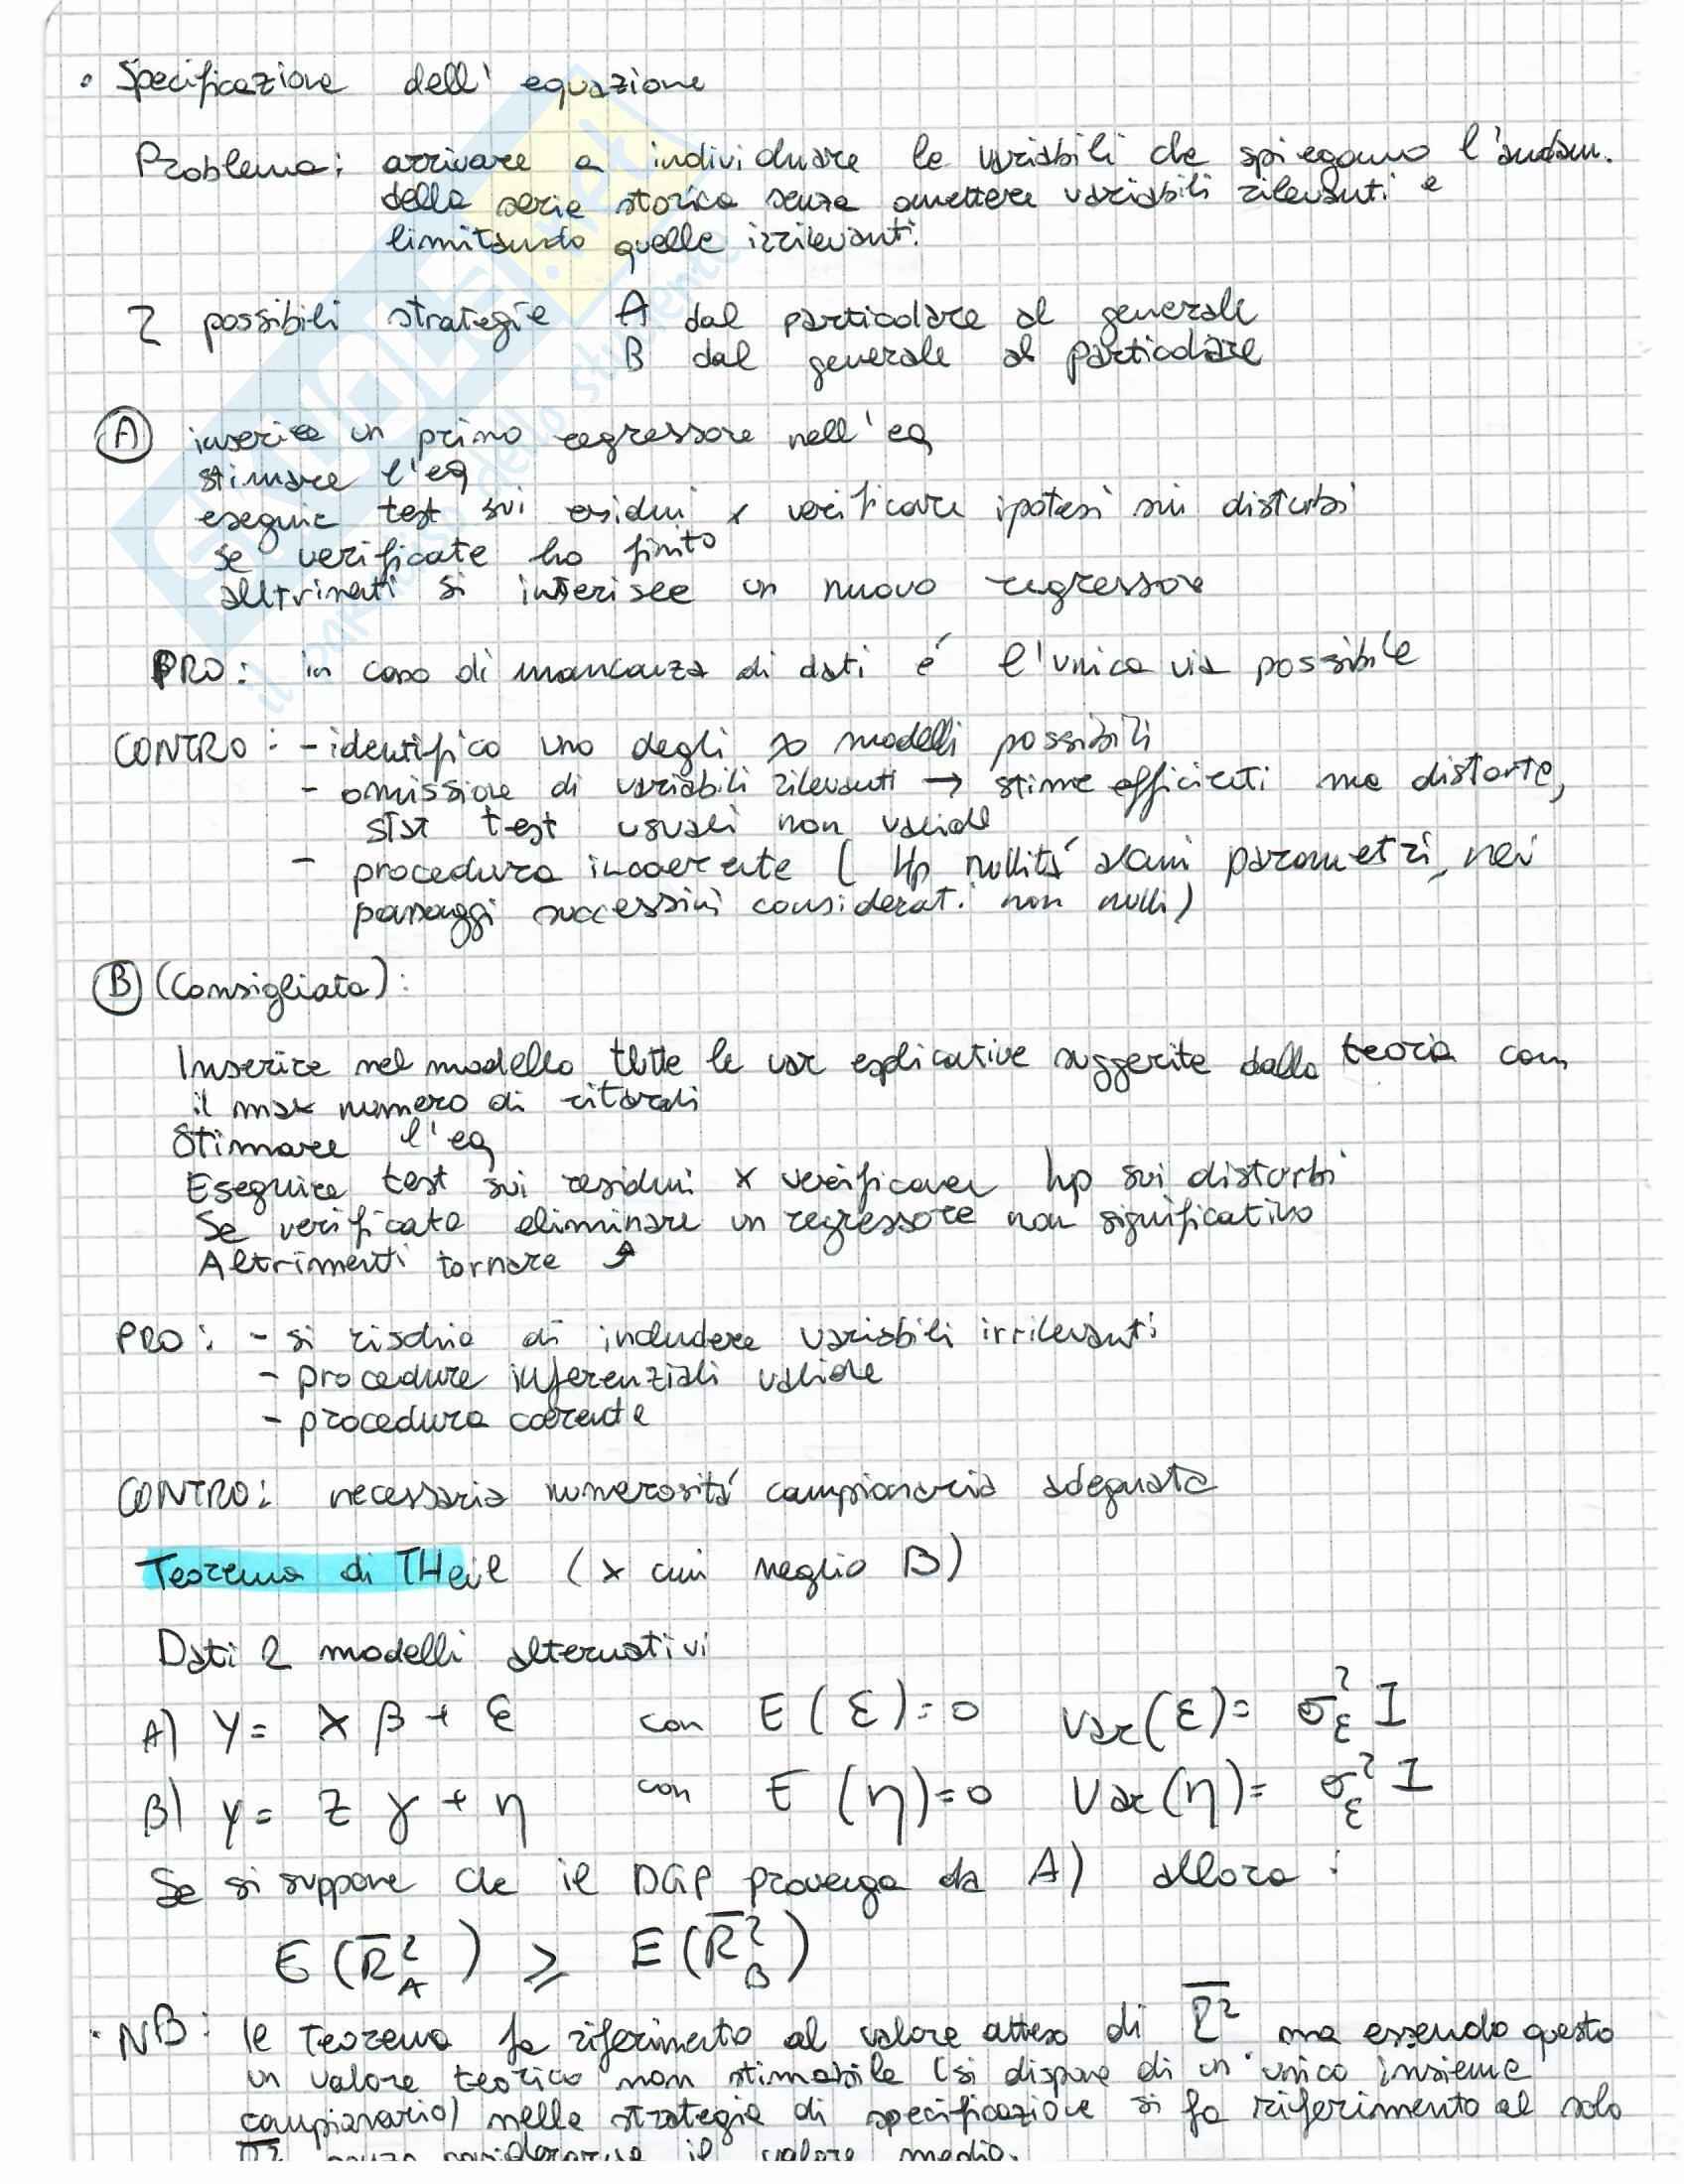 • Specificazione dell' equazione
Problema: arrivare a individuare le variabili che spiegano l'andam.
della serie storica senza omettere variabili rilevanti e
limitando quelle irrilevanti.
2 possibili strategie A dal particolare al generale
B dal generale al particolare
A inserire un primo regressore nell' eq
stimare l'eq
eseguire test sui residui x verificare ipotesi sui disturbi
se verificate ho finito
altrimenti si inserisce un nuovo regressore
PRO: in caso di mancanza di dati é l'unica via possibile
CONTRO: - identifico uno degli ∞ modelli possibili
- omissione di variabili rilevanti → stime efficienti ma distorte,
stat test usuali non valide
- procedura incoerente ( Hp nullitá alcuni parametri, nei
passaggi successivi considerati non nulli)
B (Consigliata):
Inserire nel modello tutte le var esplicative suggerite dalla teoria con
il max numero di ritardi
Stimare l'eq
Eseguire test sui residui x verificare hp sui disturbi
Se verificate eliminare un regressore non significativo
Altrimenti tornare
PRO: - si rischia di includere variabili irrilevanti
- procedure inferenziali valide
- procedura coerente
CONTRO: necessaria numerositá campionaria adeguata
Teorema di THeil (x cui meglio B)
Dati 2 modelli alternativi
A) y = X β + ε con E(ε)=0 Var(ε)= σ²ε I
B) y = Z γ + η con E(η)=0 Var(η)= σ²ε I
Se si suppone che il DGP provenga da A) allora:
E(R̄²A) ⩾ E(R̄²B)
• NB: le teorema fa riferimento al valore atteso di R̄² ma essendo questo
un valore teorico non stimabile (si dispone di un unico insieme
campionario) nelle strategie di specificazione si fa riferimento al solo
R̄² senza considerarne il valore medio.